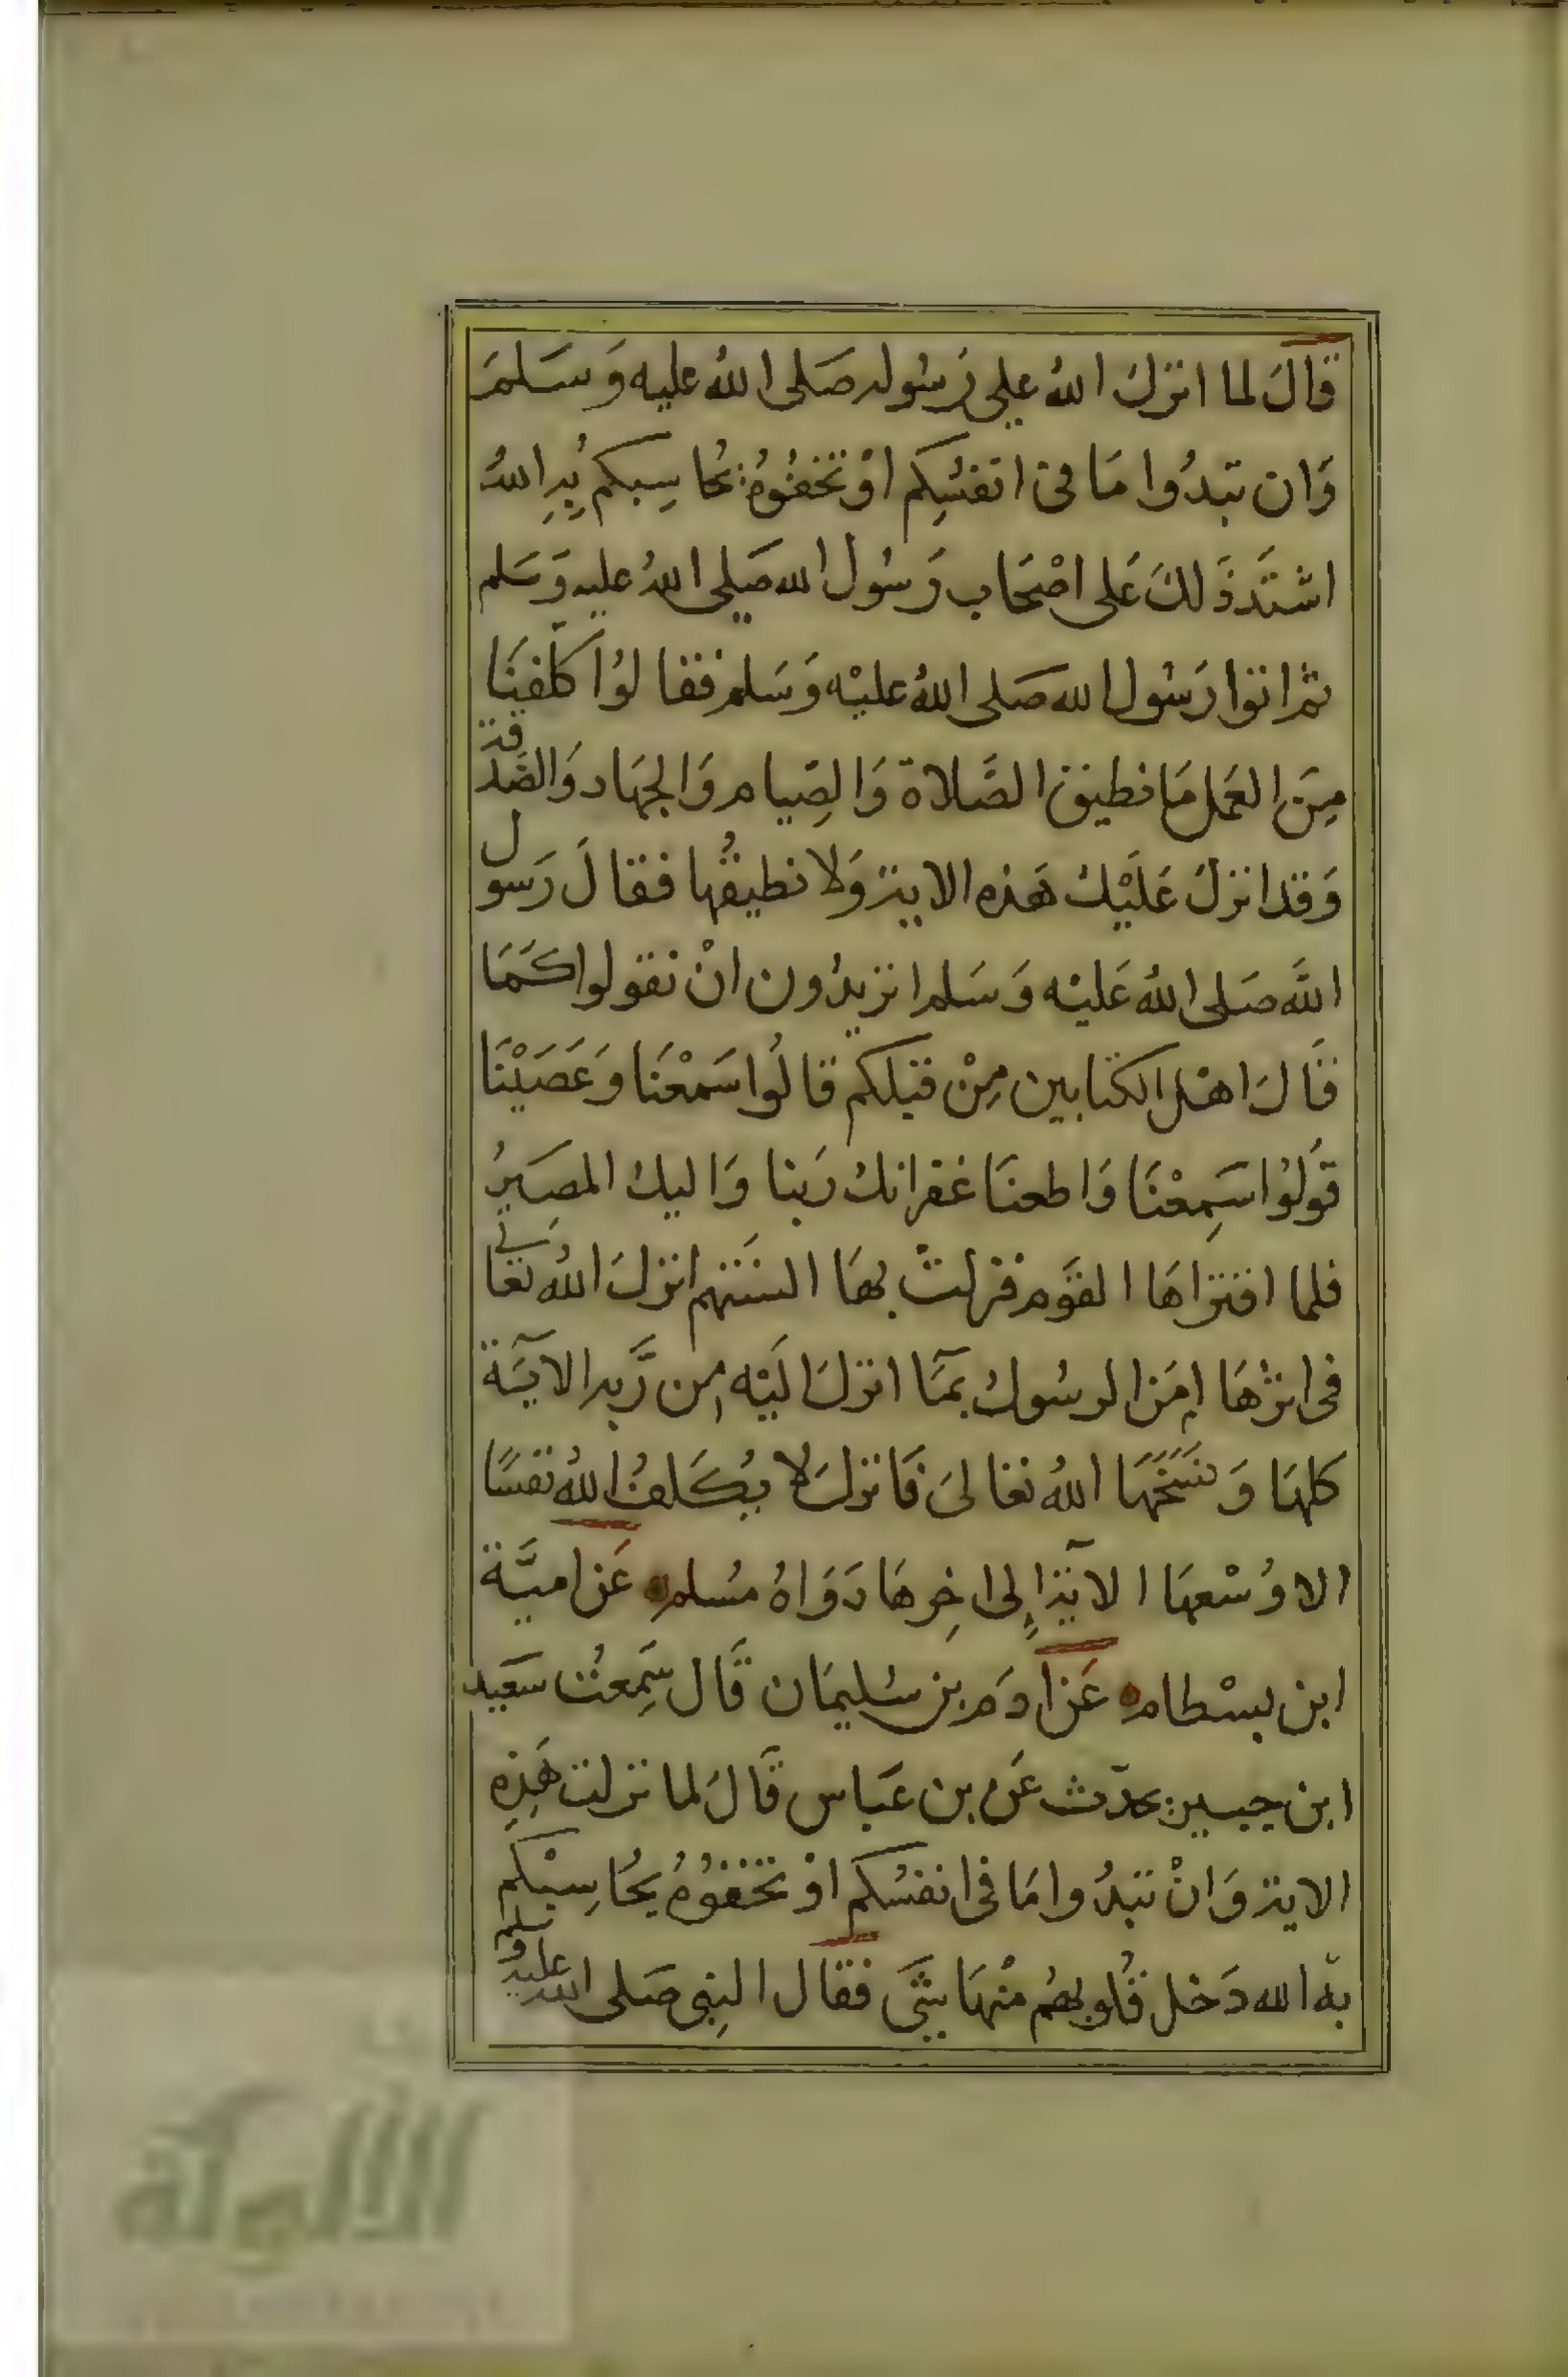 قَالَ لما انزلَ اللهُ علي رَسُوله صَلى اللهُ عليه وَسَلمَ
وَان تبدُوا مَا فى انفسِكم اوْ تخفُوهُ يُحاسِبكم بِهِ اللهُ
اشتَدذَلكَ عَلى اصْحَاب رَسُول الله صَلى اللهُ عليه وَسَلم
ثم اتوا رَسُول الله صَلى اللهُ عليْه وَسَلم فقالوُا كلفِنَا
مِنَ العَمل مَا نطيق الصَّلاة وَالصِيام وَالجهَاد وَالصَدقة
وَقد انزلَ عَليْك هَذه الاية وَلا نطيقُها فقالَ رَسول
اللَّه صَلى اللهُ عَليْه وَسَلم اتريدُون انْ تقولوا كَمَا
قَالَ اهْل الكتابين مِنْ قبْلكم قالُوا سَمعْنَا وَعَصَيْنَا
قوُلوُا سَمِعْنَا وَاطعنَا غفرانك رَبنا وَاليك المصَيرُ
فلما اقتراهَا القوَم فزلتْ بهَا السنَتهم انزلَ اللهُ تعَالى
فى اثرْهَا امَن الرسُول بمَآ انزلَ اليْه من رَّبه الآيَة
كلهَا وَنسَخَهَا اللهُ تعَالىَ فَانزلَ لا يُكَلفُ اللهُ نفسًا
الا وُسْعهَا الآية اِلى اخِرهَا رَوَاهُ مُسلم عَن اميَّة
ابن بسْطام عَن ادَم بن سُليمَان قَال سَمِعتُ سَعيد
ابن جبير يحدّث عَن بن عَباس قَالَ لما نزلت هَذِه
الاية وَانْ تبدُوا مَا فى انفسُكم اوْ تخفوُهُ يحُاسِبْكم
به الله دَخل قُلوبهُم مْنهَا شَى فقَال النِبى صَلى الله عليه وسلم
الألوكة